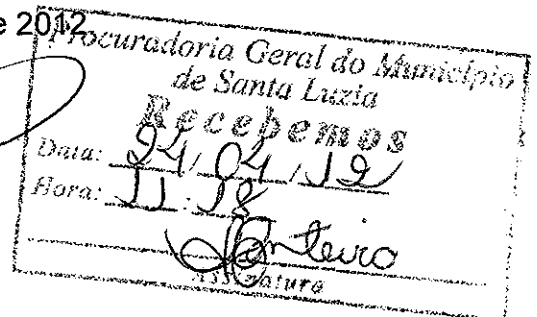 e 2012
Procuradoria Geral do Município
de Santa Luzia
Recebemos
Data: 24/04/12
Hora: 11:18
Monteiro
Assinatura